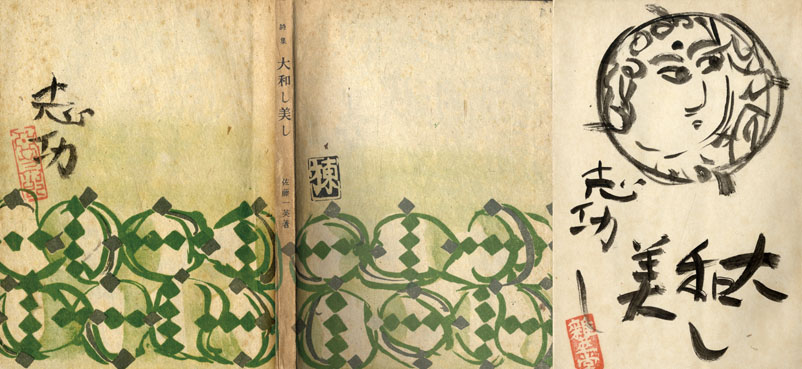 志功
詩集 大和し美し 佐藤一英著
棟
志功
大和し
美し